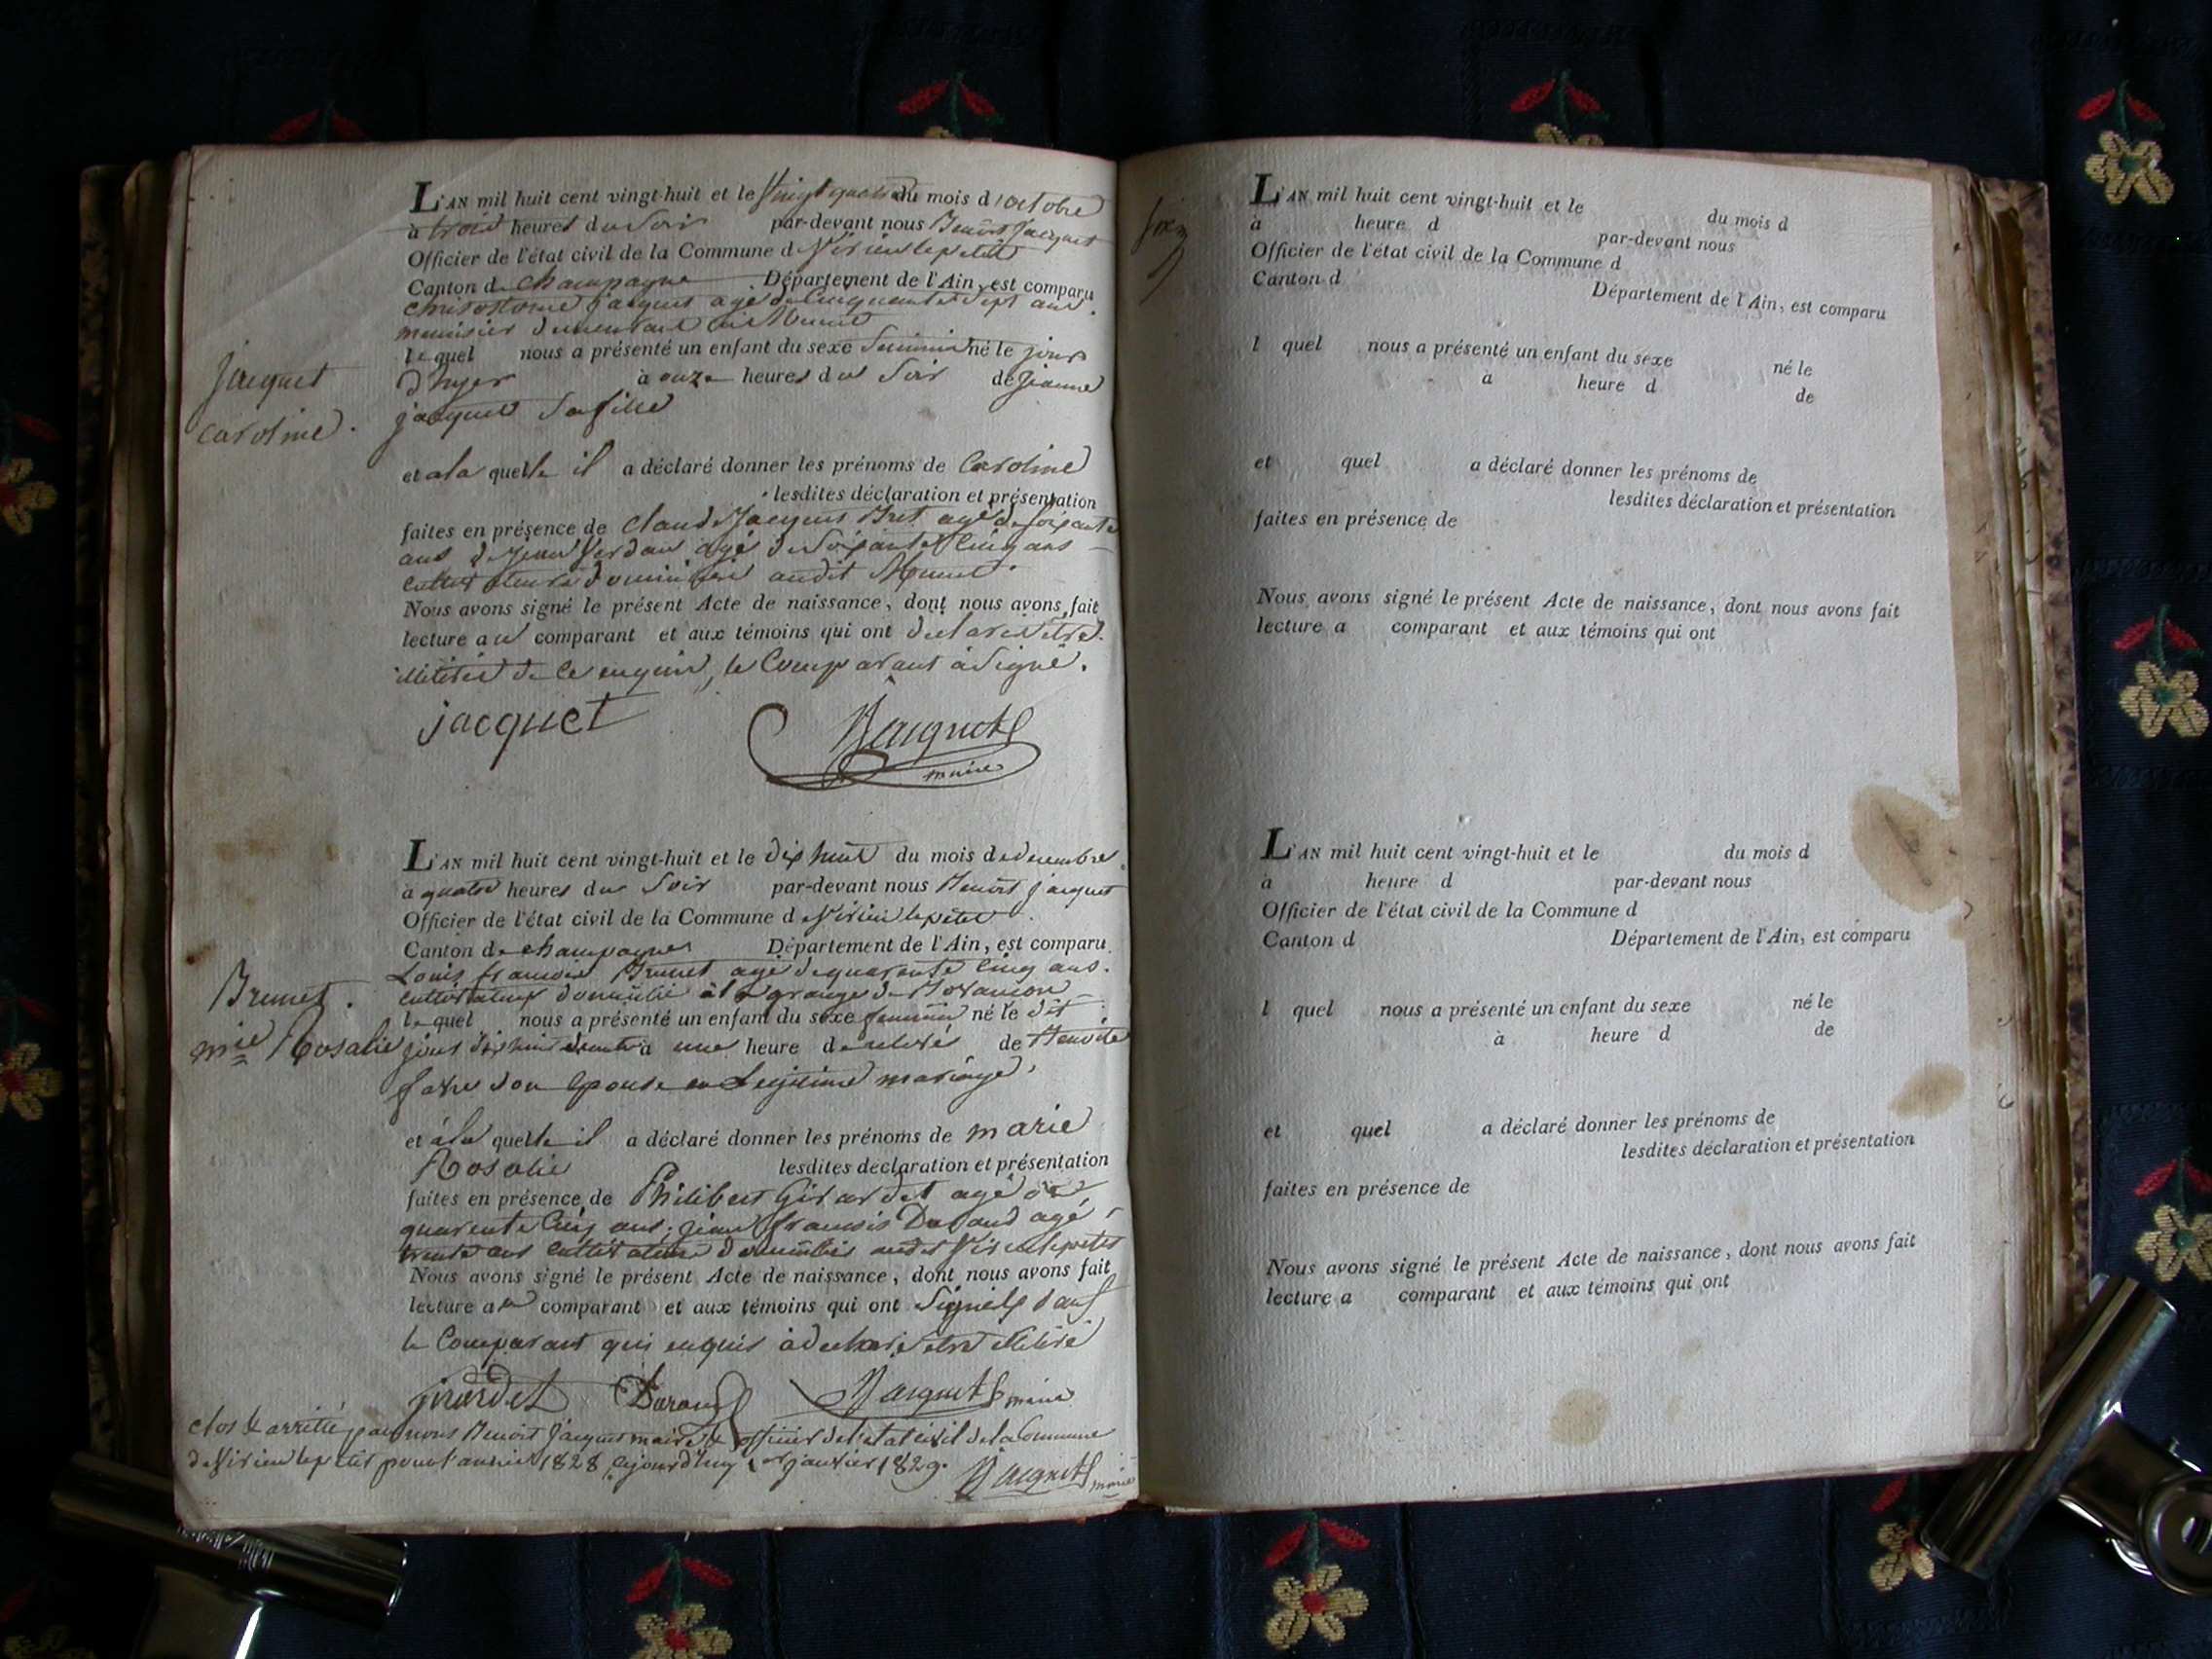 L'AN mil huit cent vingt-huit et le vingt quatre du mois d'octobre
à trois heures du Soir par-devant nous Benoit Jacquet
Officier de l'état civil de la Commune de Virieu le petit
Canton de champagne Département de l'Ain, est comparu
jacquet agé de Cinquante Sept ans
menuisier demeurant
lequel nous a présenté un enfant du sexe feminin né le jour
d'hyer à onze heures du Soir de jeanne
jacquet Sa fille
jacquet
caroline.
et a la quelle il a déclaré donner les prénoms de Caroline
lesdites déclaration et présentation
faites en présence de Claude Jacquet Bret agé de soixante
ans & jean Verdan agé de Soixante Cinq ans
Cultivateurs domiciliés audit Munet.
Nous avons signé le présent Acte de naissance, dont nous avons fait
lecture au comparant et aux témoins qui ont declaré etre
illitéré de ce enquis, le Comparant à Signé.
jacquet
Jacquet
maire
L'AN mil huit cent vingt-huit et le dix huit du mois de decembre
à quatre heures du Soir par-devant nous Benoit jacquet
Officier de l'état civil de la Commune de Virieu le petit
Canton de champagne Département de l'Ain, est comparu
Louis francois Brunet agé de quarente Cinq ans.
cultivateur domicilié à la grange de
lequel nous a présenté un enfant du sexe feminin né le dit
Brunet.
mie Rosalie
jour dix huit à une heure de de Benoite
son epouse en Legitime mariage,
et à la quelle il a déclaré donner les prénoms de marie
Rosalie lesdites déclaration et présentation
faites en présence de Philibert Girardet agé de
quarente Cinq ans, jean francois Durand agé
trente ans cultivateurs domiciliés audit Virieu le petit
Nous avons signé le présent Acte de naissance, dont nous avons fait
lecture au comparant et aux témoins qui ont Signés Sauf
le Comparant qui enquis à declaré etre illitéré
jirardet Durand Jacquet maire
clos & arrêté par nous Benoit Jacquet maire & officier de l'etat civil de la Commune
de Virieu le petit pour l'année 1828 cejourd'huy 1er janvier 1829.
Jacquet maire
L'AN mil huit cent vingt-huit et le du mois d
à heure d par-devant nous
Officier de l'état civil de la Commune d
Canton d Département de l'Ain, est comparu
l quel nous a présenté un enfant du sexe né le
à heure d de
et quel a déclaré donner les prénoms de
lesdites déclaration et présentation
faites en présence de
Nous avons signé le présent Acte de naissance, dont nous avons fait
lecture a comparant et aux témoins qui ont
L'AN mil huit cent vingt-huit et le du mois d
à heure d par-devant nous
Officier de l'état civil de la Commune d
Canton d Département de l'Ain, est comparu
l quel nous a présenté un enfant du sexe né le
à heure d de
et quel a déclaré donner les prénoms de
lesdites déclaration et présentation
faites en présence de
Nous avons signé le présent Acte de naissance, dont nous avons fait
lecture a comparant et aux témoins qui ont